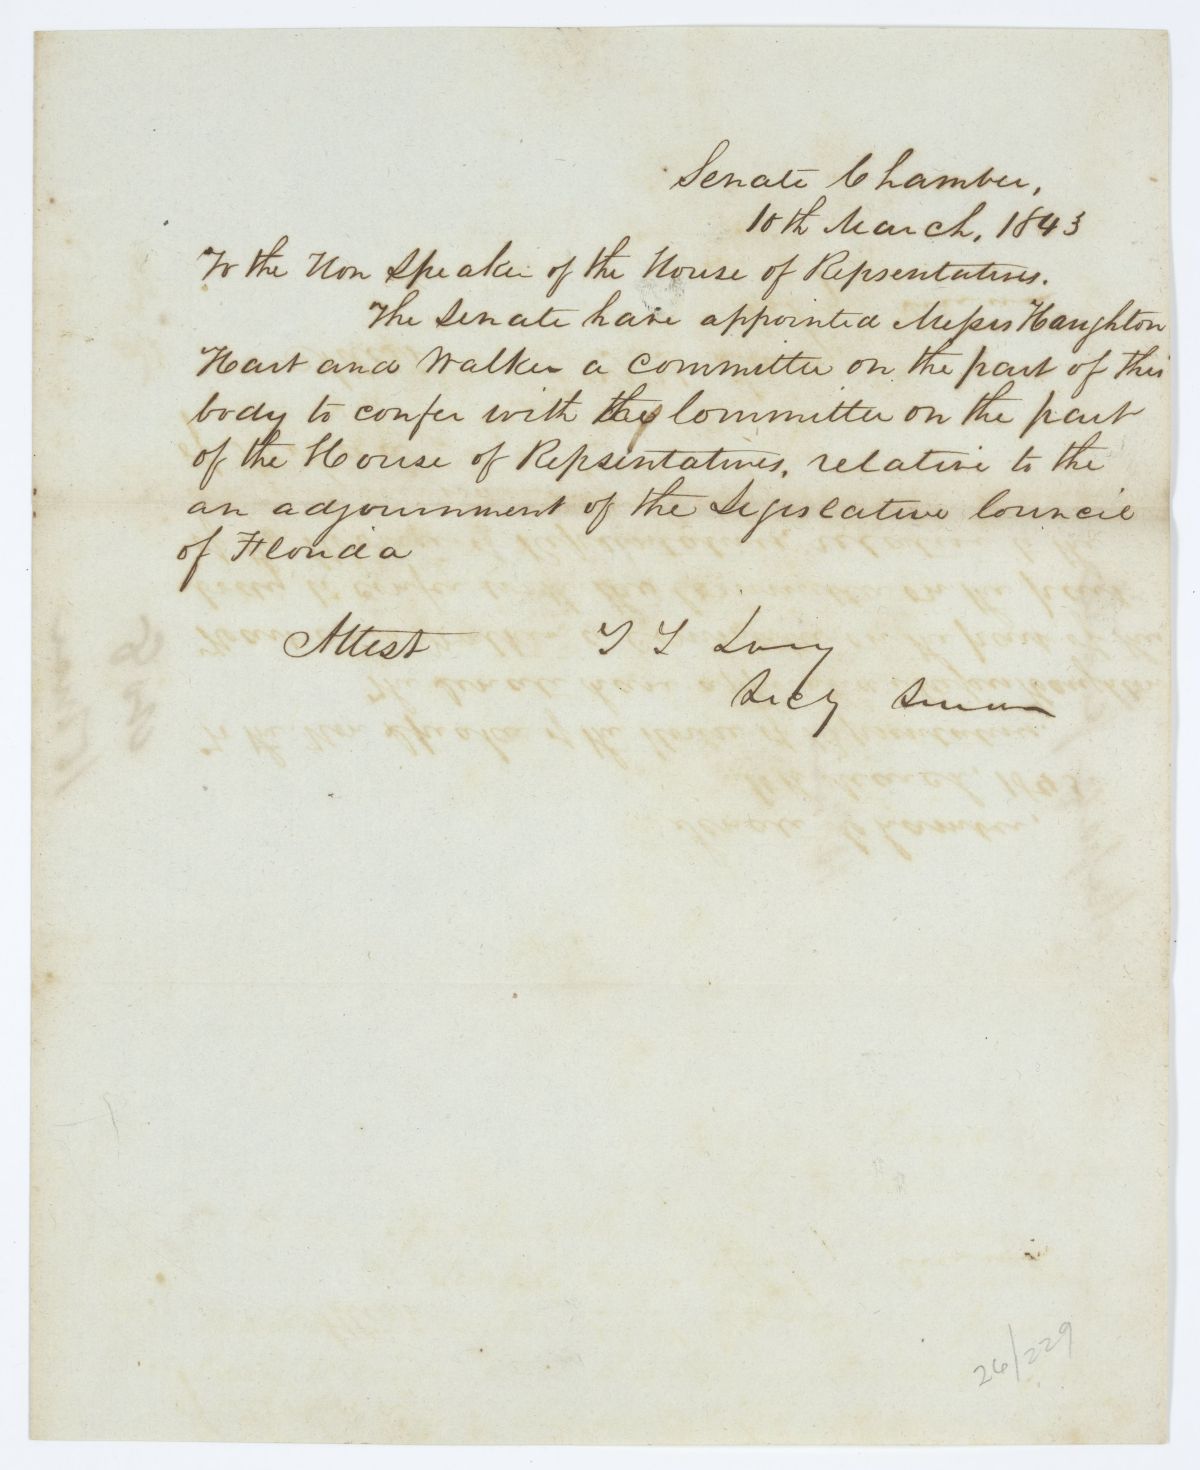 Senate Chamber,
10th March, 1843
To the Hon Speaker of the House of Repsentatives.
The Senate have appointed Messrs Haughton
Hart and Walker a committee on the part of this
body to confer with the Committee on the part
of the House of Repsentatives, relative to the
an adjournment of the Legislative Council
of Florida
Attest T T Long
Secy Senate
26/229